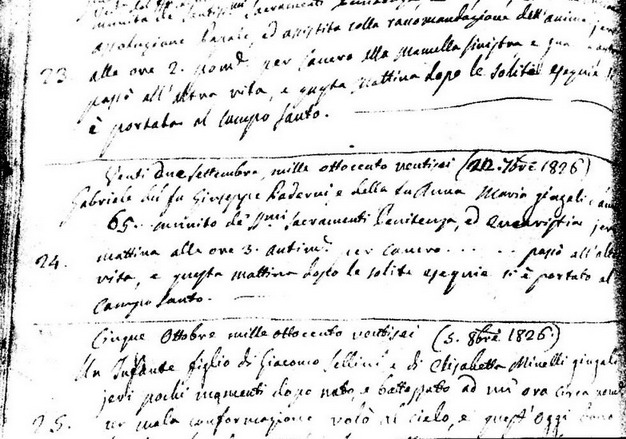 munita de Santissimi Sacramenti Penitenza
assoluzione Papale, ed assistita colla racomandazione dell'anima, jeri
23. alle ore 2. pomd. per cancro alla Mamella sinistra e
passò all'altra vita, e questa mattina dopo le solite esequie si
è portata al Campo Santo.
Venti due Settembre, mille ottocento ventisei (22. 7bre 1826)
Gabriele del fu Giuseppe Paderni, e della fu Anna Maria giugali,
65. munito de' SSmi Sacramenti Penitenza, ed Eucaristia jeri
24. mattina alle ore 3. antimd. per cancro . . . . . passò all'altra
vita, e questa mattina dopo le solite esequie si è portato al
Campo Santo.
Cinque Ottobre mille ottocento ventisei (5. 8bre 1826)
Un Infante figlio di Giacomo Sellini e di Elisabetta Minelli giugali
jeri pochi momenti dopo nato, e battezzato ad un' ora circa pomd.
25. per mala conformazione volò al cielo, e quest'oggi